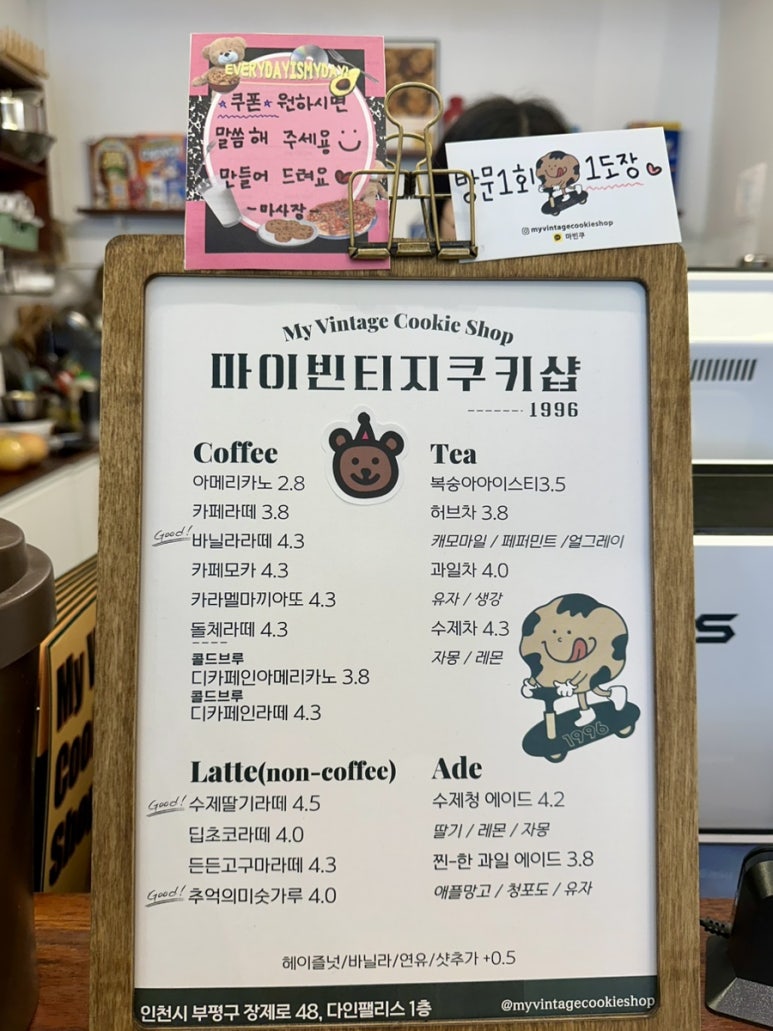 EVERYDAYISMYDAY!
*쿠폰* 원하시면
말씀해 주세용
만들어 드려요♥
-마사장-
방문1회 1도장♥
myvintagecookieshop
마빈쿠
My Vintage Cookie Shop
마이빈티지쿠키샵
1996
Coffee
아메리카노 2.8
카페라떼 3.8
Good! 바닐라라떼 4.3
카페모카 4.3
카라멜마끼아또 4.3
돌체라떼 4.3
콜드브루
디카페인아메리카노 3.8
콜드브루
디카페인라떼 4.3
Tea
복숭아아이스티3.5
허브차 3.8
캐모마일 / 페퍼민트 /얼그레이
과일차 4.0
유자 / 생강
수제차 4.3
자몽 / 레몬
1996
Latte(non-coffee)
Good! 수제딸기라떼 4.5
딥초코라떼 4.0
든든고구마라떼 4.3
Good! 추억의미숫가루 4.0
Ade
수제청 에이드 4.2
딸기 / 레몬 / 자몽
찐-한 과일 에이드 3.8
애플망고 / 청포도 / 유자
헤이즐넛/바닐라/연유/샷추가 +0.5
인천시 부평구 장제로 48, 다인팰리스 1층
@myvintagecookieshop